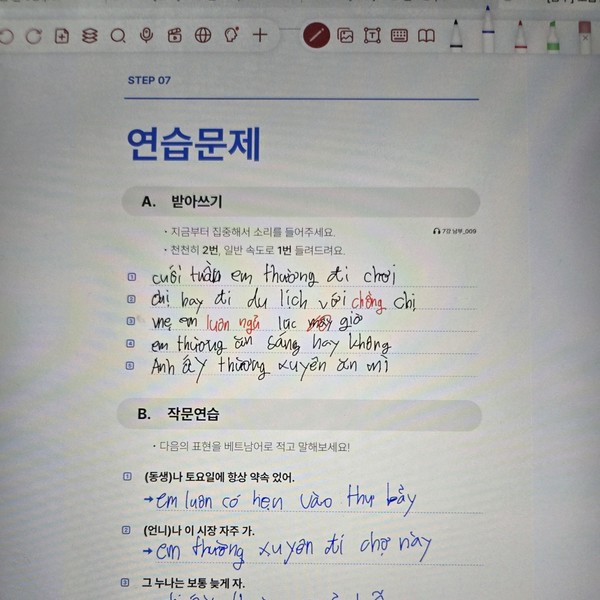 STEP 07
연습문제
A. 받아쓰기
• 지금부터 집중해서 소리를 들어주세요.
7강 남부_009
• 천천히 2번, 일반 속도로 1번 들려드려요.
1 cuối tuần em thường đi chơi
2 chị hay đi du lịch với chồng chị
3 mẹ em luôn ngủ lúc giờ
4 em thường ăn sáng hay không
5 Anh ấy thường xuyên ăn mì
B. 작문연습
• 다음의 표현을 베트남어로 적고 말해보세요!
1 (동생)나 토요일에 항상 약속 있어.
→ em luôn có hẹn vào thứ bảy
2 (언니)나 이 시장 자주 가.
→ em thường xuyên đi chợ này
3 그 누나는 보통 늦게 자.